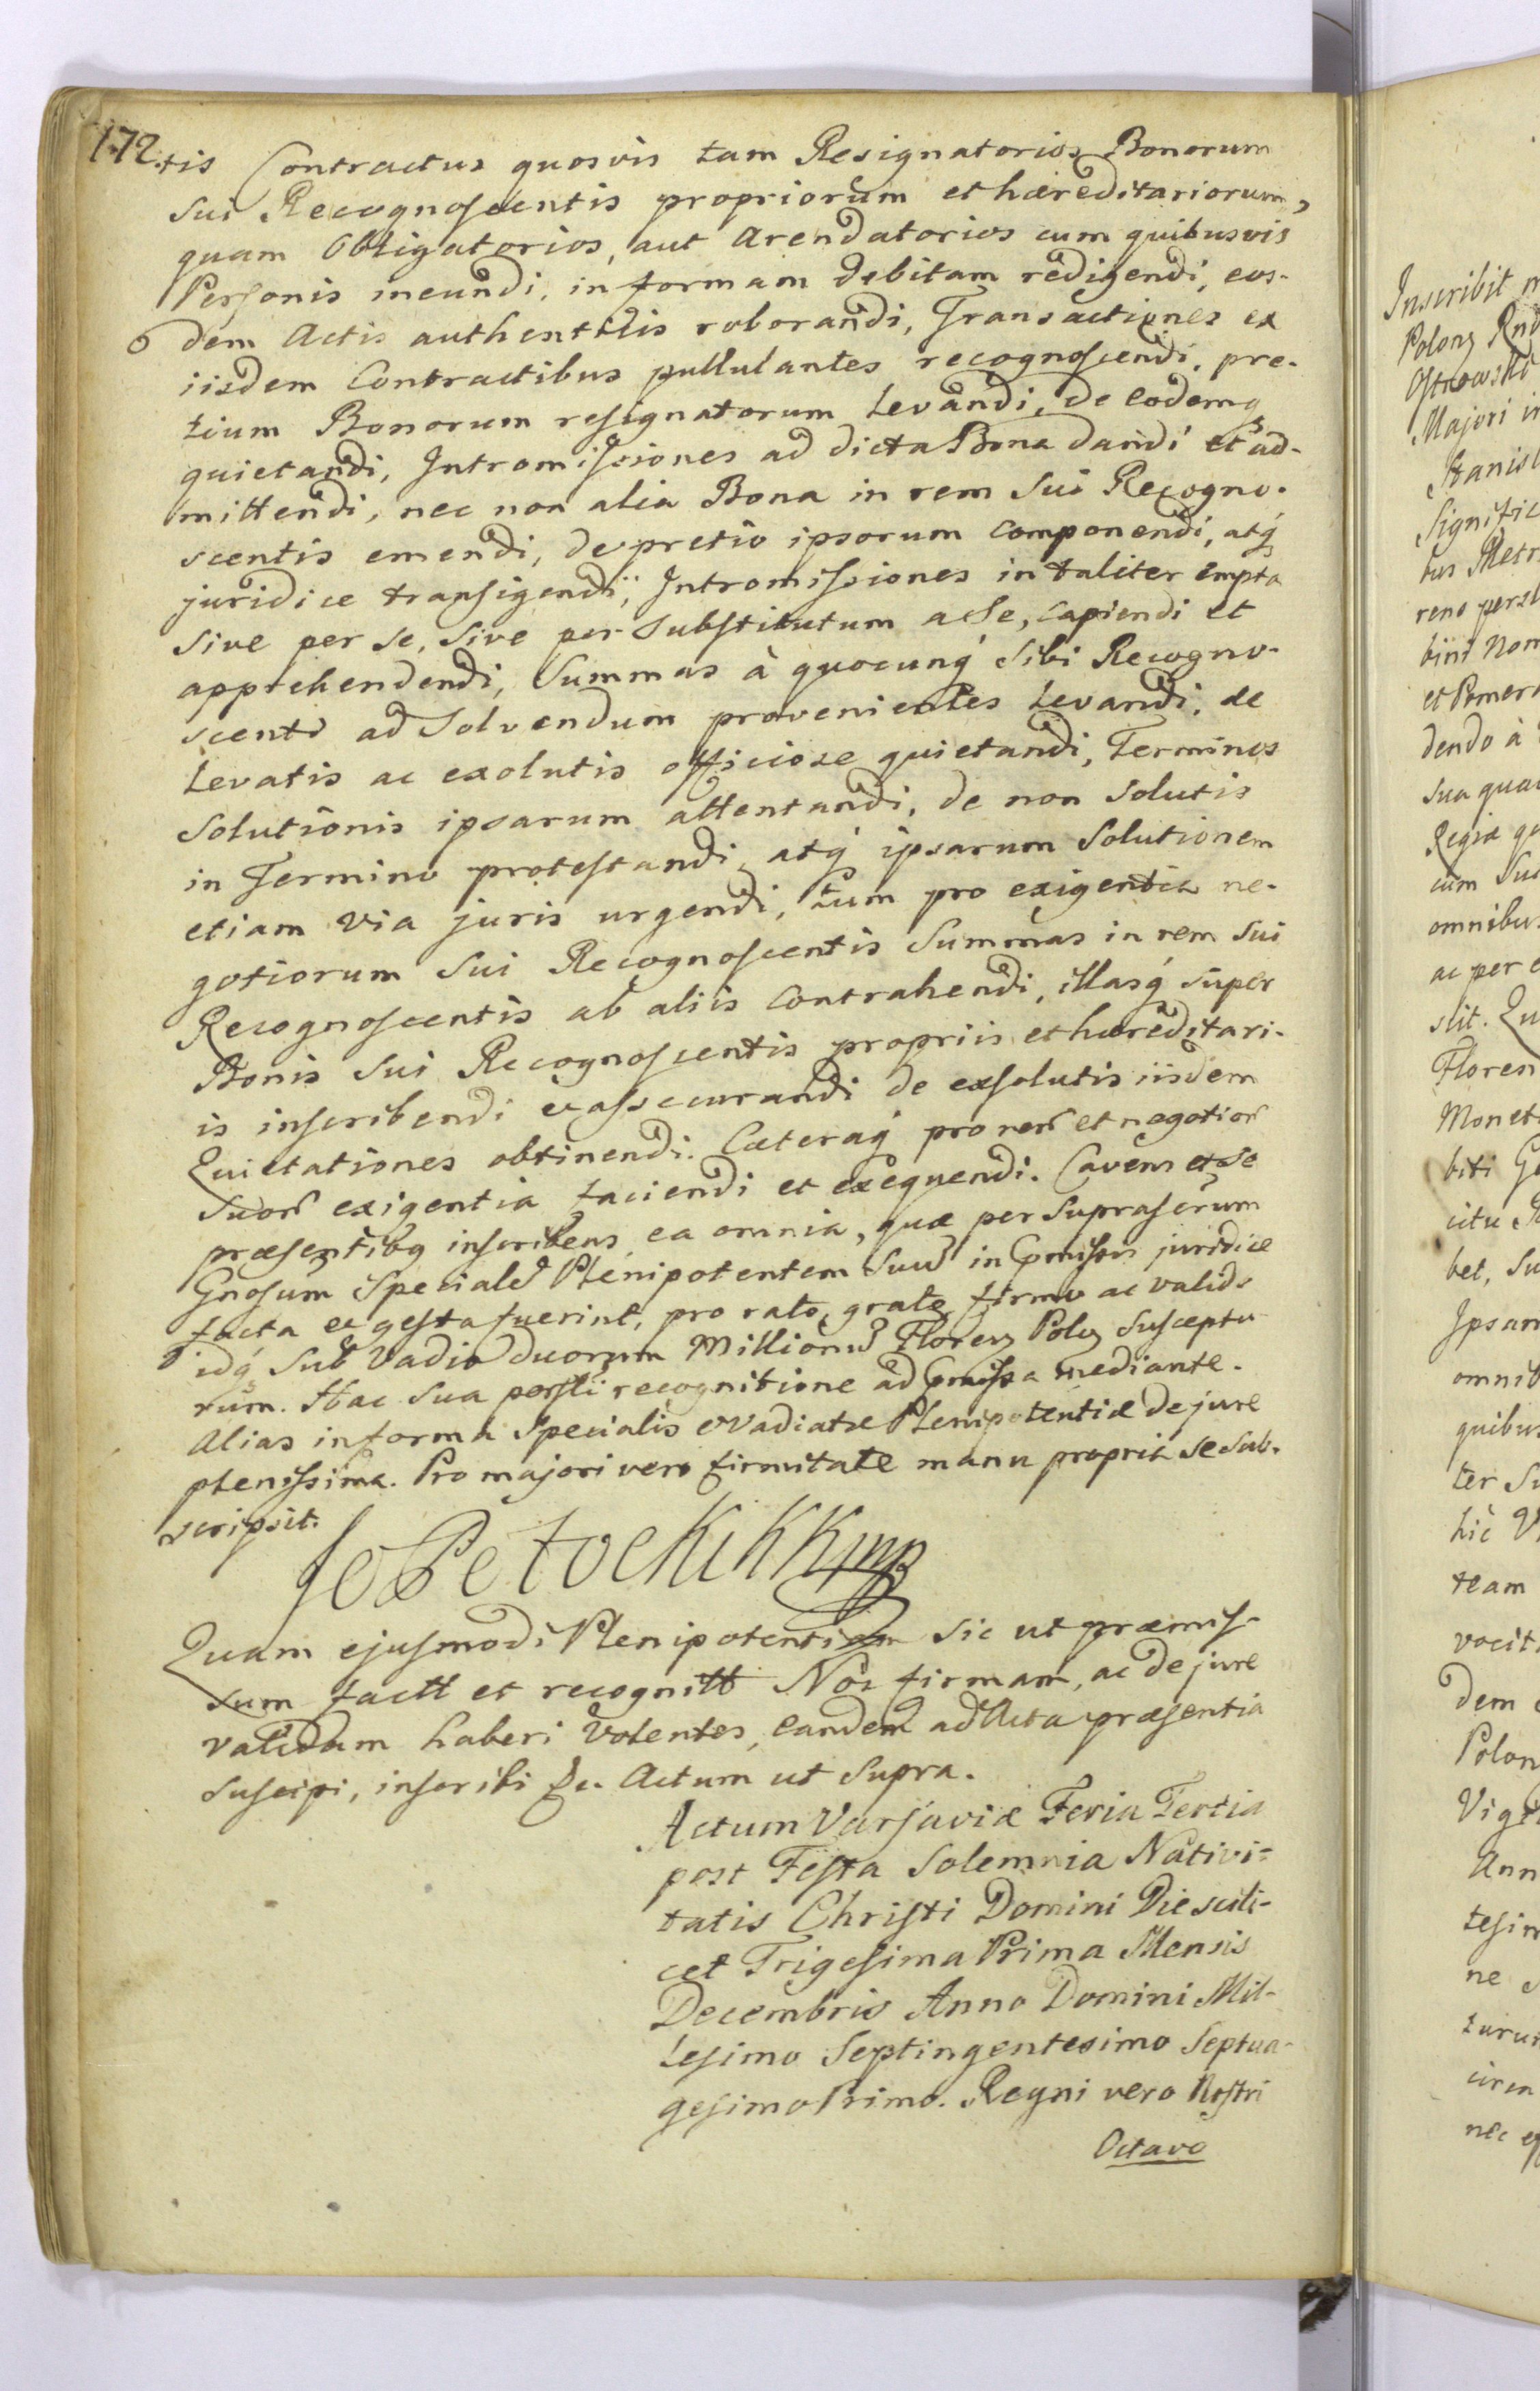 172.
tis Contractus quosvis tam Resignatorios Bonorum
sui Recognoscentis propriorum et hæreditariorum,
quam Obligatorios, aut Arendatorios cum quibusvis
Personis ineundi, in formam debitam redigendi, eos-
dem Actis authenticis roborandi, Transactiones ex
iisdem Contractibus pullulantes recognoscendi, pre-
tium Bonorum resignatorum levandi, de eodemq
quietandi, Intromissiones ad dicta Bona dandi et ad-
mittendi, nec non alia Bona in rem sui Recogno-
scentis emendi, de pretio ipsorum componendi, atq
juridice transigendi, Intromissiones in taliter empta
sive per se, sive per substitutum a se, capiendi et
apprehendendi, Summas à quocunq sibi Recogno-
scenti ad solvendum provenientes levandi, de
levatis ac exolutis officiose quietandi, Terminos
Solutionis ipsarum attentandi, de non solutis
in Termino protestandi, atq ipsarum Solutionem
etiam via juris urgendi, tum pro exigentia ne-
gotiorum sui Recognoscentis Summas in rem sui
Recognoscentis ab aliis Contrahendi, illasq super
Bonis sui Recognoscentis propriis et hæreditari-
is inscribendi et assecurandi de exsolutis iisdem
Quietationes obtinendi. Cæteraq pro rer et negotior
suor exigentia faciendi et exequendi. Cavens et se
præsentibq inscribens, ea omnia, quæ per suprascrum
Gnosum Speciale Plenipotentem Suu in Præmissis juridice
facta et gesta fuerint, pro rato, grato, firmo ac valido
idq sub Vadio duorum Millionu Floren Pol susceptu-
rum. Hac sua persli recognitione ad Præmissa mediante.
Alias in forma Specialis et Vadiatæ Plenipotentiæ de jure
plenissima. Pro majori vero firmitate manu propria se sub-
scripsit.
Quam ejusmodi Plenipotentiam sic ut præmis-
sum fact et recognit Nos firmam, ac de jure
validam haberi Volentes, eandem ad Acta præsentia
suscipi, inscribi &c. Actum ut supra.
Actum Varsaviæ Feria Tertia
post Festa Solemnia Nativi-
tatis Christi Domini Die scili-
cet Trigesima Prima Mensis
Decembris Anno Domini Mil-
lesimo Septingentesimo Septua-
gesimo Primo. Regni vero Nostri
Octavo
Inscribit
Polon
Ostrowski
Majori
Stanisl
Signific
tus Metr
reno persl
bini Nom
et Pomer
dendo à
sua qua
Regiæ
cum Suc
omnibus
ac per
sit. Qu
Floren
Monet
biti
citu
bet, su
Ipsam
omnib
quibus
ter
hic
team
vocit
dem
Polon
Vig
Ann
tesim
ne
turu
circ
nec